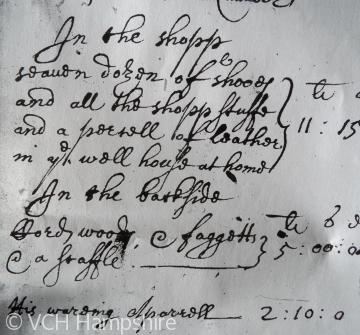 In the shopp
seaven dozen of shooes
and all the shopp stuffe
and a persell of leather
in ye well house at home
li
11 : 15
In the backside
Cordwood, & faggetts
& a scaffle
li s d
5 : 00 : 00
His wareing Aparrell 2 : 10 : 0
© VCH Hampshire